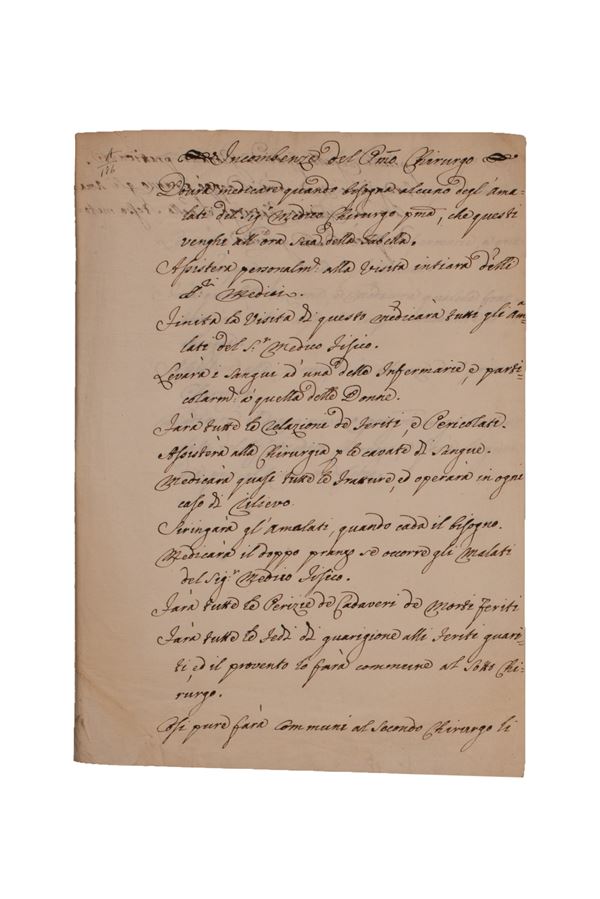 Incombenze del Pmo. Chirurgo
Dovrà medicare quando bisogna alcuno degl' Ama=
lati del Sigr. Medico Chirurgo pmã, che questi
venghi all' ora sua della Tabella.
Assisterà personalmte. alla Visita intiara delli
SSri. Medici.
Finita la Visita di questo medicarà tutti gli Am̃-
lati del Sr. Medico Fisico.
Levarà i Sangui ad una delle Infermarie, e parti-
colarmte. a quella delle Donne.
Farà tutte le Relazione de Feriti, e Pericolati.
Assisterà alla Chirurgia p le cavate di Sangue.
Medicarà quasi tutte le fratture, ed operarà in ogni
caso di Rilievo
Siringarà gl' Amalati, quando cada il bisogno.
Medicarà il doppo pranzo se occorre gli Malati
del Sigr. Medico Fisico.
Farà tutte le Perizie de Cadaveri de Morti feriti
Farà tutte le Fedi di guarigione alli Feriti guari=
ti ed il provento lo farà commune al Sotto Chi=
rurgo.
Così pure farà Communi al Secondo Chirurgo li